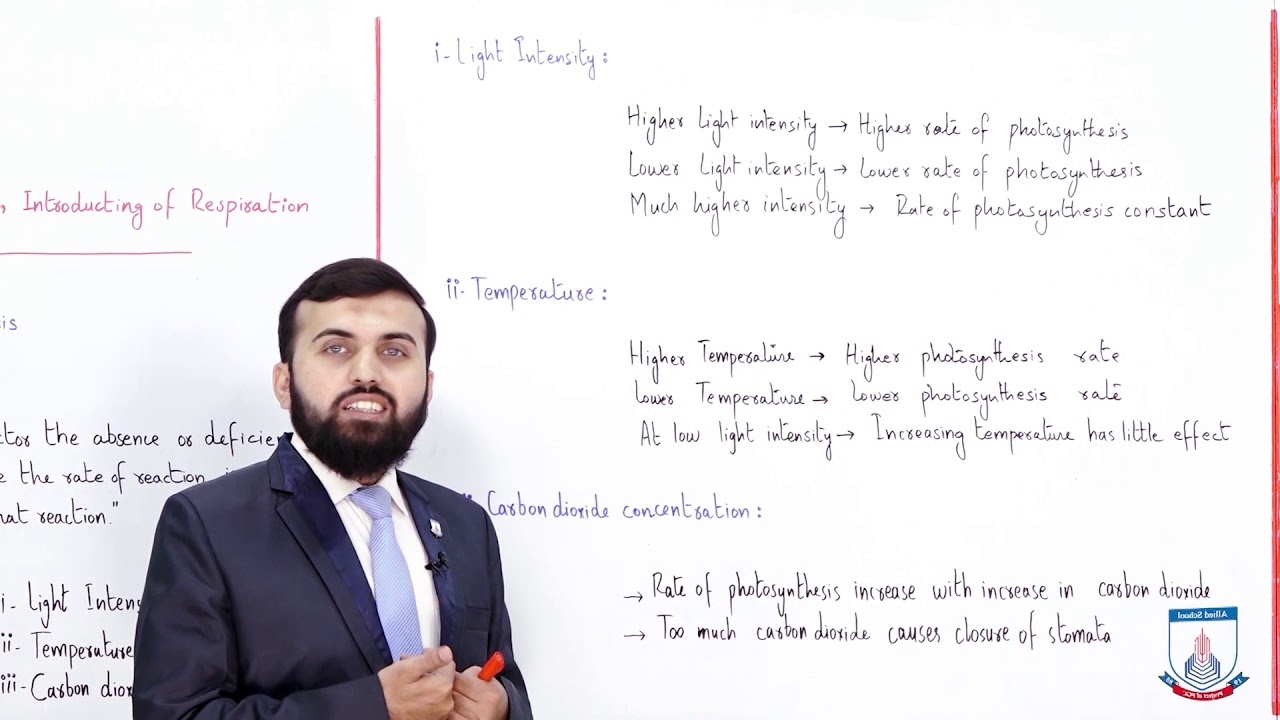 , Introducting of Respiration
sis
ctor the absence or deficien
e the rate of reaction
hat reaction."
i- Light Intens
ii- Temperature
iii- Carbon diox
i- Light Intensity:
Higher Light intensity → Higher rate of photosynthesis
Lower Light intensity → Lower rate of photosynthesis
Much higher intensity → Rate of photosynthesis constant
ii- Temperature:
Higher Temperature → Higher photosynthesis rate
Lower Temperature → Lower photosynthesis rate
At low light intensity → Increasing temperature has little effect
Carbon dioxide concentration:
→ Rate of photosynthesis increase with increase in carbon dioxide
→ Too much carbon dioxide causes closure of stomata
Allied School
Project of PGC